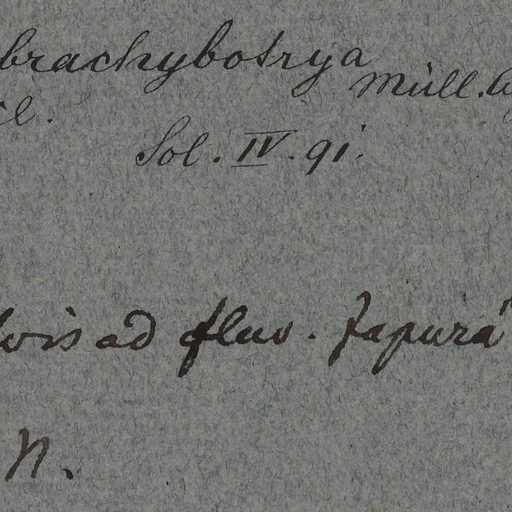 brachybotrya Müll.
il.
Sol. IV. 91.
ad fluv. Japurá
N.